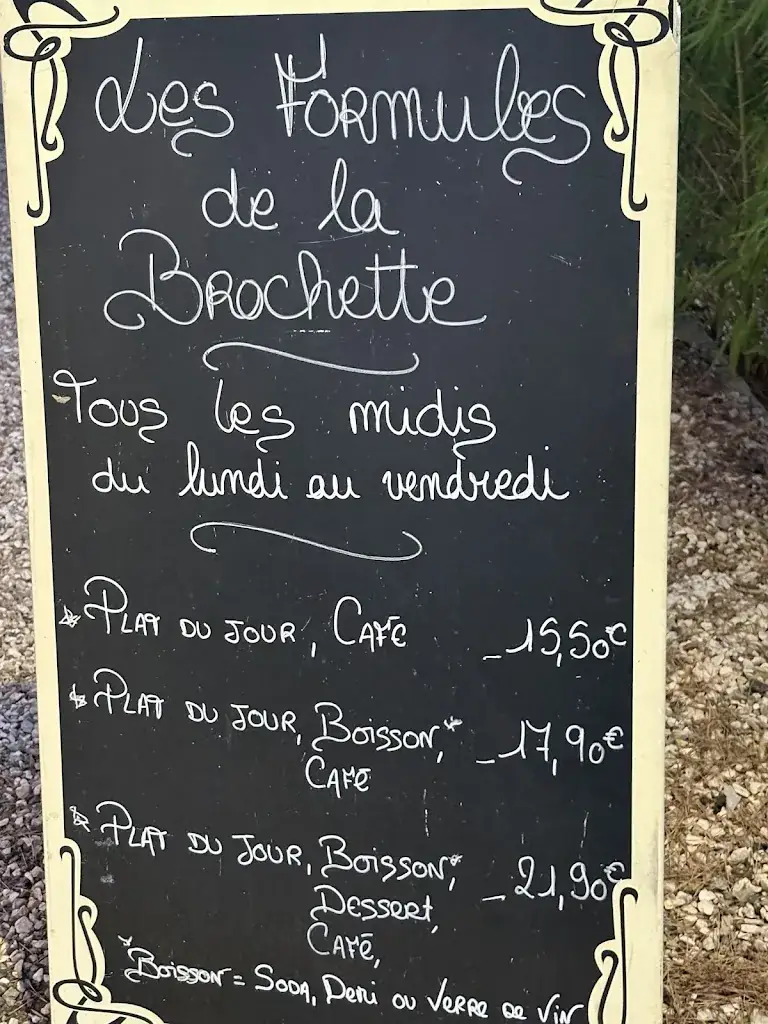 Les Formules
de la
Brochette
Tous les midis
du lundi au vendredi
* Plat du jour, Café - 15,50€
* Plat du jour, Boisson,* - 17,90€
Café
* Plat du jour, Boisson,* - 21,90€
Dessert,
Café,
*Boisson = Soda, Demi ou Verre de Vin